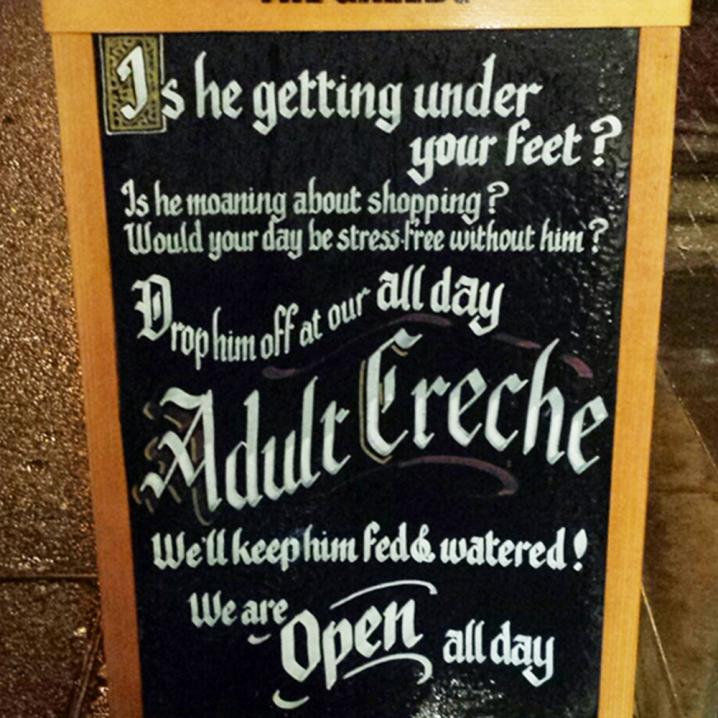 Is he getting under
your feet?
Is he moaning about shopping?
Would your day be stress-free without him?
Drop him off at our all day
Adult Creche
We'll keep him fed & watered!
We are Open all day